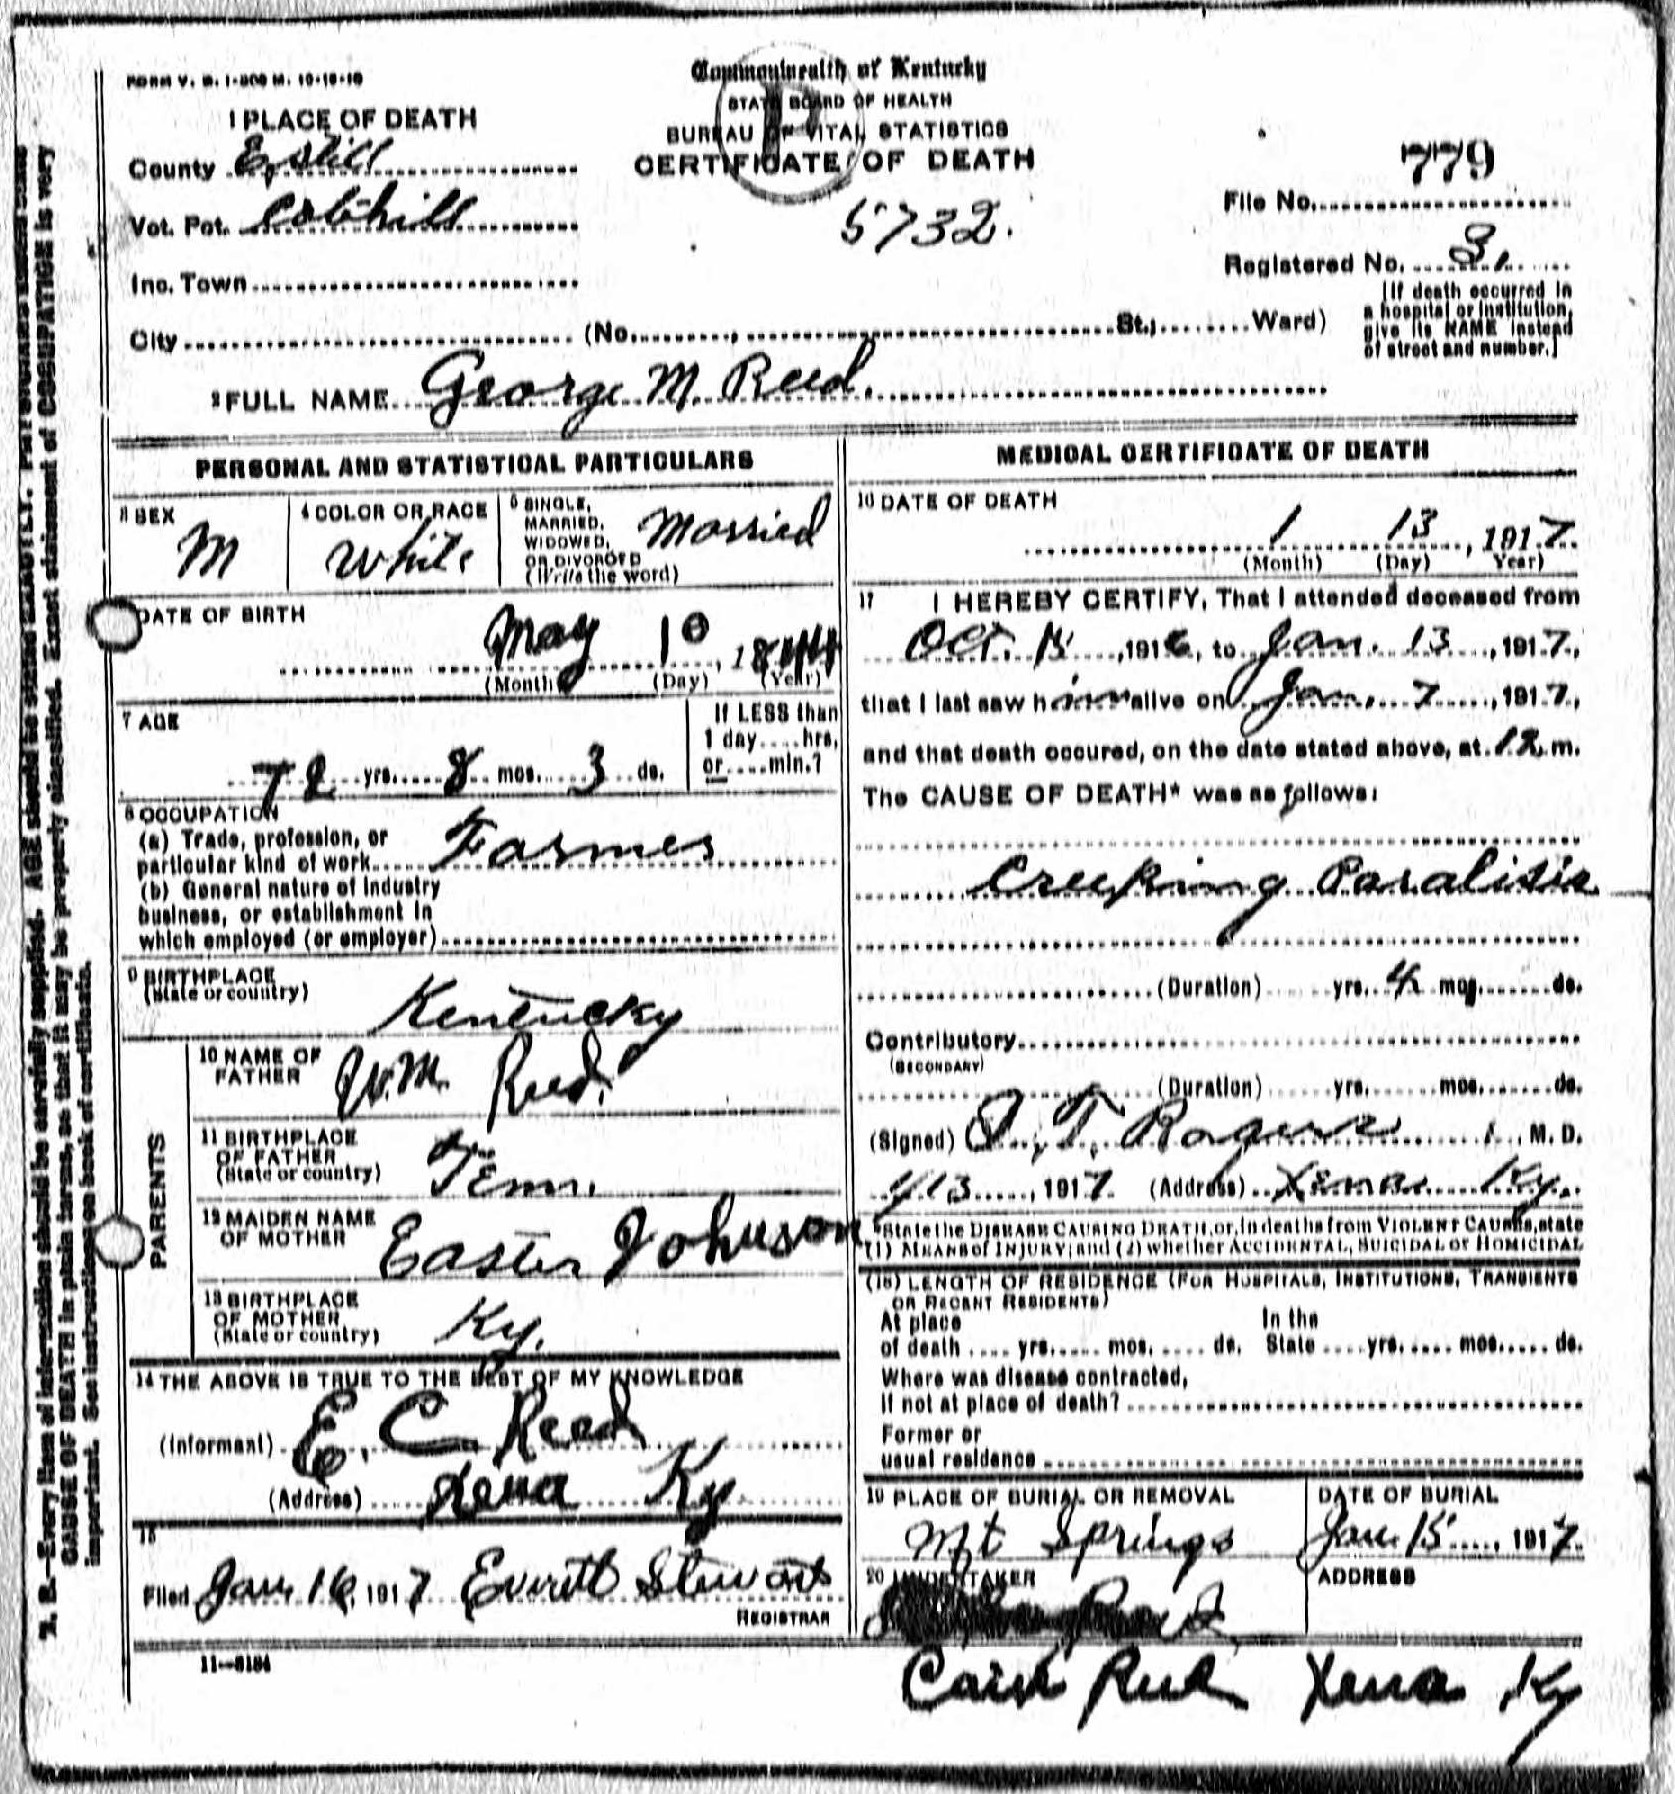 FORM V. S. 1-200 M. 10-18-10
Commonwealth of Kentucky
STATE BOARD OF HEALTH
BUREAU OF VITAL STATISTICS
CERTIFICATE OF DEATH
1 PLACE OF DEATH
County Estill
Vot. Pct. Cobhill
Inc. Town
5732.
779
File No.
Registered No. 3
City (No. St., Ward)
[If death occurred in
a hospital or institution,
give its NAME instead
of street and number.]
2 FULL NAME George M. Reed.
PERSONAL AND STATISTICAL PARTICULARS
3 SEX
M
4 COLOR OR RACE
White
5 SINGLE,
MARRIED,
WIDOWED,
OR DIVORCED
(Write the word)
Married
DATE OF BIRTH
May 10, 1844
(Month) (Day) (Year)
7 AGE
72 yrs. 8 mos. 3 ds.
If LESS than
1 day....hrs,
or....min.?
8 OCCUPATION
(a) Trade, profession, or
particular kind of work Farmer
(b) General nature of industry
business, or establishment in
which employed (or employer)
9 BIRTHPLACE
(State or country)
Kentucky
PARENTS
10 NAME OF
FATHER
Wm. Reed.
11 BIRTHPLACE
OF FATHER
(State or country)
Tenn.
12 MAIDEN NAME
OF MOTHER
Easter Johnson
13 BIRTHPLACE
OF MOTHER
(State or country)
Ky.
14 THE ABOVE IS TRUE TO THE BEST OF MY KNOWLEDGE
(Informant) E. C. Reed
(Address) Xena Ky
15
Filed Jan. 16, 1917 Everett Stewart
REGISTRAR
11--6184
MEDICAL CERTIFICATE OF DEATH
16 DATE OF DEATH
1 13, 1917.
(Month) (Day) Year)
17 I HEREBY CERTIFY, That I attended deceased from
Oct. 15, 1916, to Jan. 13, 1917.,
that I last saw him alive on Jan. 7, 1917.,
and that death occured, on the date stated above, at 12 m.
The CAUSE OF DEATH* was as follows:
Creeping Paralisis
(Duration) yrs. 4 mos. ds.
Contributory
(SECONDARY)
(Duration) yrs. mos. ds.
(Signed) T. Rogers, M. D.
1/13, 1917. (Address) Xena Ky.
*State the DISEASE CAUSING DEATH, or, in deaths from VIOLENT CAUSES, state
(1) MEANS of INJURY; and (2) whether ACCIDENTAL, SUICIDAL or HOMICIDAL
(18) LENGTH OF RESIDENCE (FOR HOSPITALS, INSTITUTIONS, TRANSIENTS
OR RECENT RESIDENTS)
At place
of death .... yrs. .... mos. .... ds.
In the
State .... yrs. .... mos. .... ds.
Where was disease contracted,
if not at place of death?
Former or
usual residence
19 PLACE OF BURIAL OR REMOVAL
Mt Springs
DATE OF BURIAL
Jan. 15, 1917.
20 UNDERTAKER
ADDRESS
Reed Xena Ky
N. B.—Every item of information should be carefully supplied. AGE should be stated EXACTLY. PHYSICIANS should state
CAUSE OF DEATH in plain terms, so that it may be properly classified. Exact statement of OCCUPATION is very
important. See instructions on back of certificate.